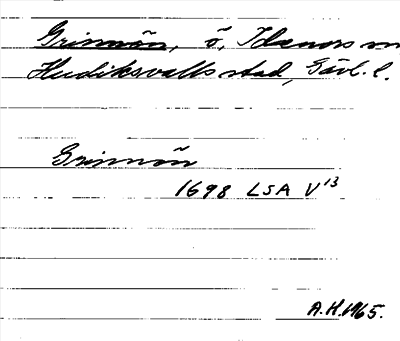 Grinnön, ö, Idenors sn
Hudiksvalls stad, Gävl. l.
Grinnön
1698 LSA V¹³
A.H. 1965.